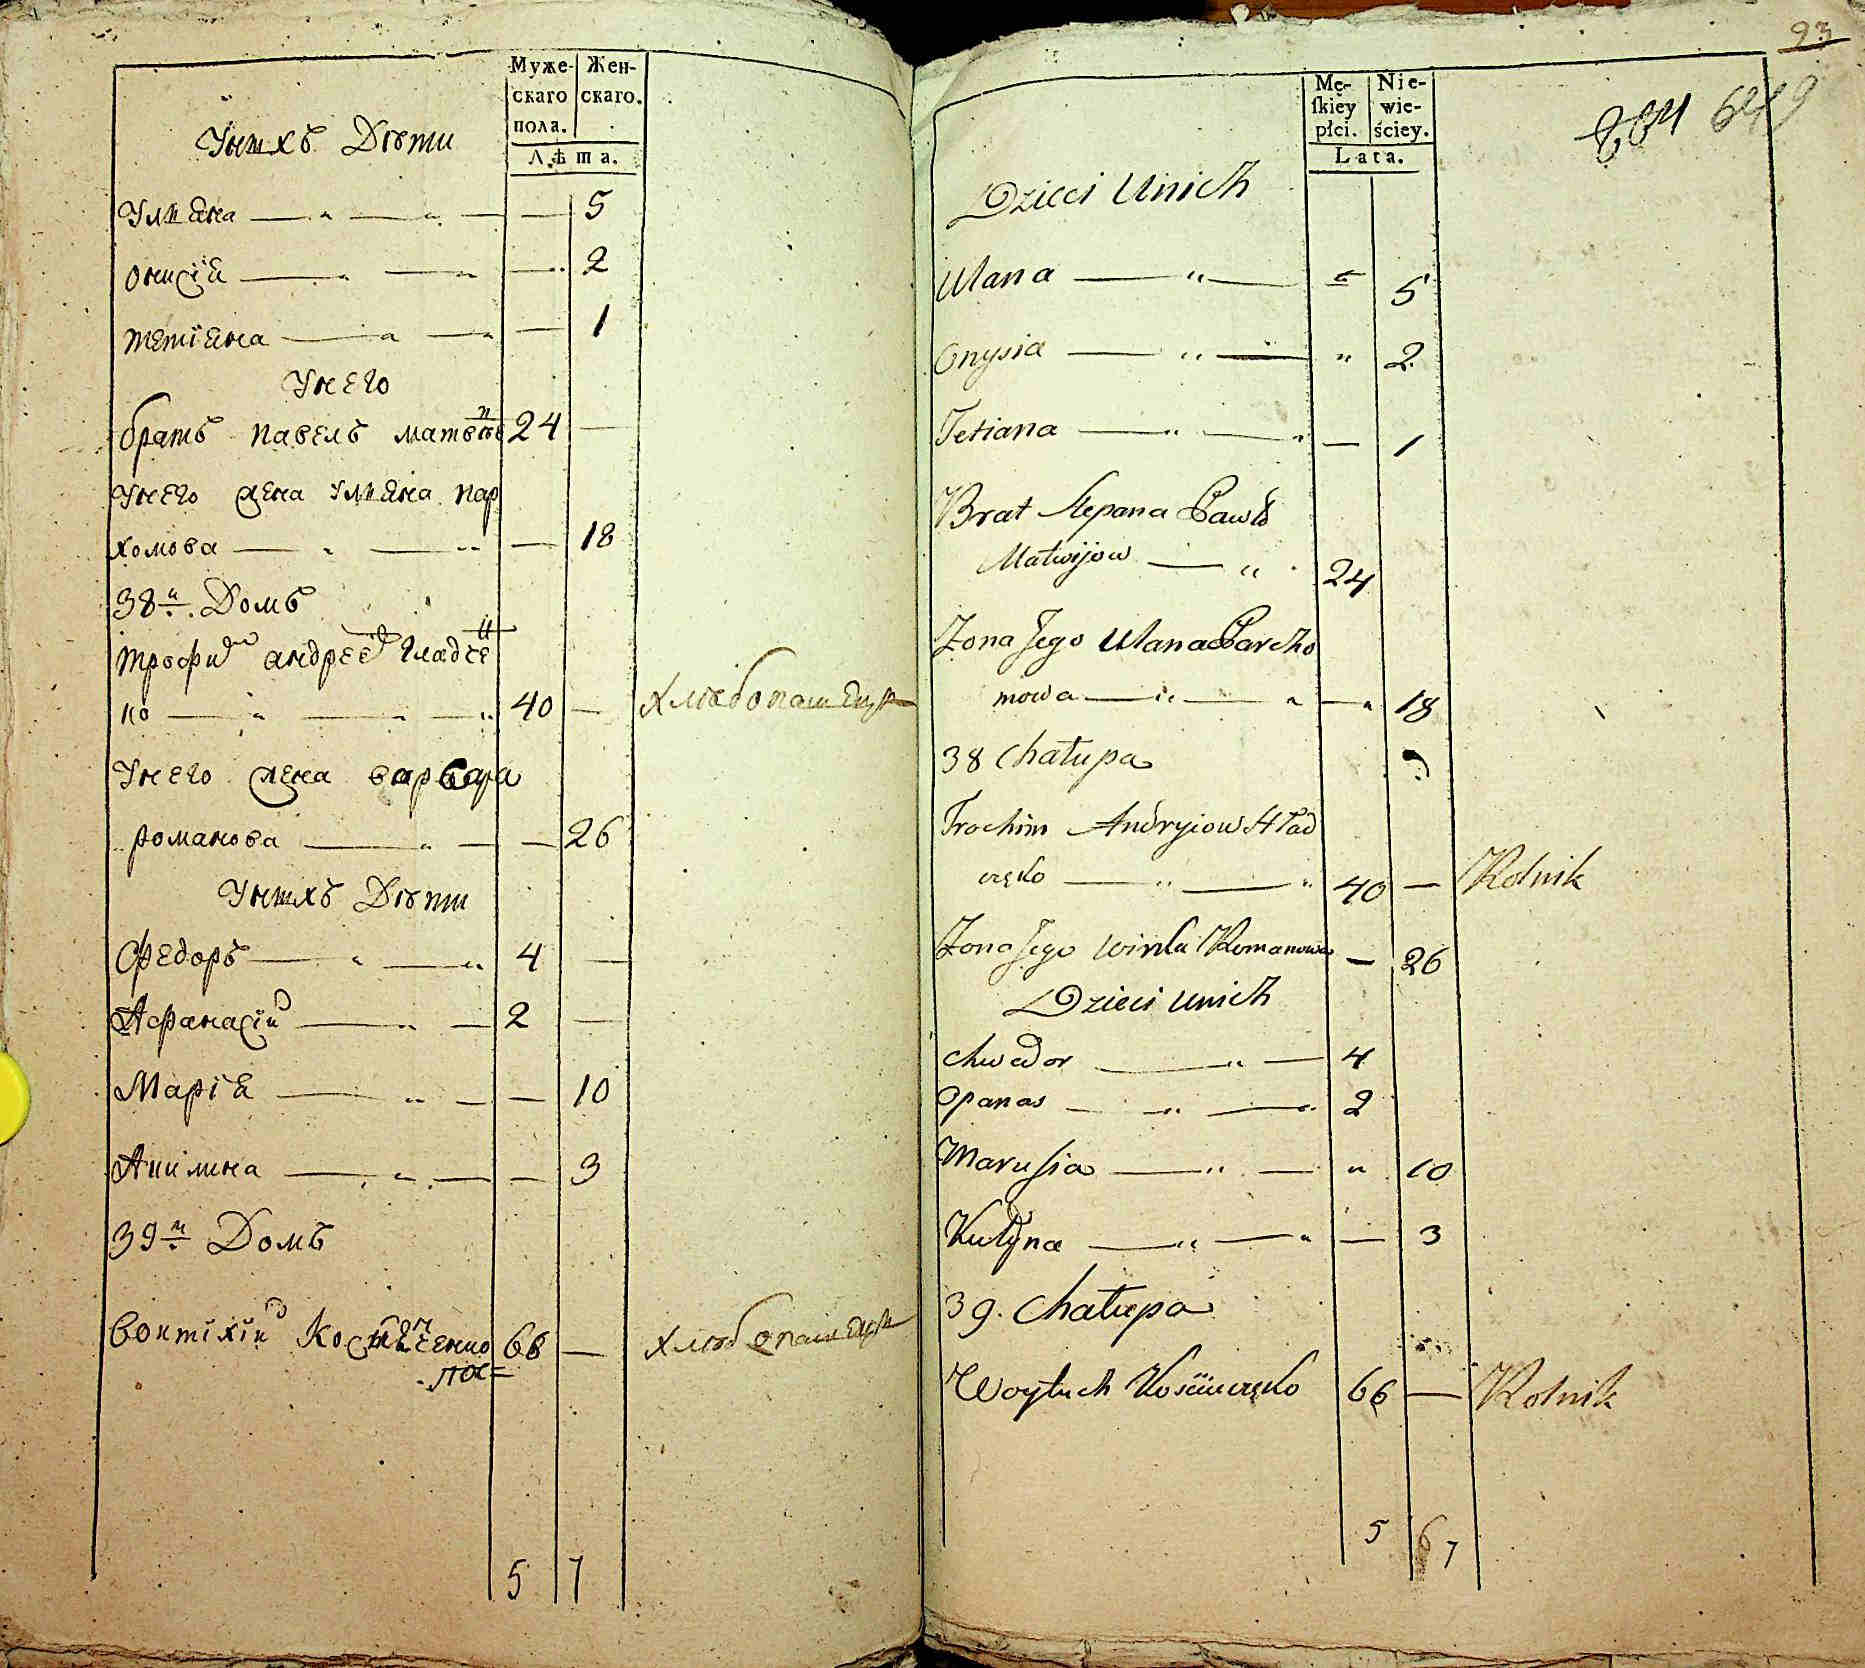 Муже-
скаго
пола.
Жен-
скаго.
Лѣта.
Унихъ Дѣти
Улияна — 5
Онисія — 2
Тетіяна — 1
Унего
братъ Павелъ Матвѣевъ 24 —
Унего жена Улияна пар
хомова — 18
38й Домъ
Трофимъ андреевъ Гладче
нко 40 — хлѣбопашецъ
Унего жена варвара
романова — 26
Унихъ Дѣти
Федоръ 4 —
Афанасій 2 —
Марія — 10
Акилина — 3
39й Домъ
66 — хлѣбопашецъ
5 7
93
649
Mę-
skiey
płci.
Nie-
wie-
ściey.
Lata.
Dzieci Unich
Ulana " 5
Onysia " 2
Tetiana — 1
Brat Stepana Pawło
Matwijow 24
Zona Jego Ulana Parcho
mowa — 18
38 Chałupa
Trochim Andryiow Hład
częko 40 — Rolnik
Zona Jego Romanowa — 26
Dzieci Unich
Chwedor 4
Opanas 2
Marusia " 10
Kulyna — 3
39. Chałupa
Woytuch 66 — Rolnik
5 6 7